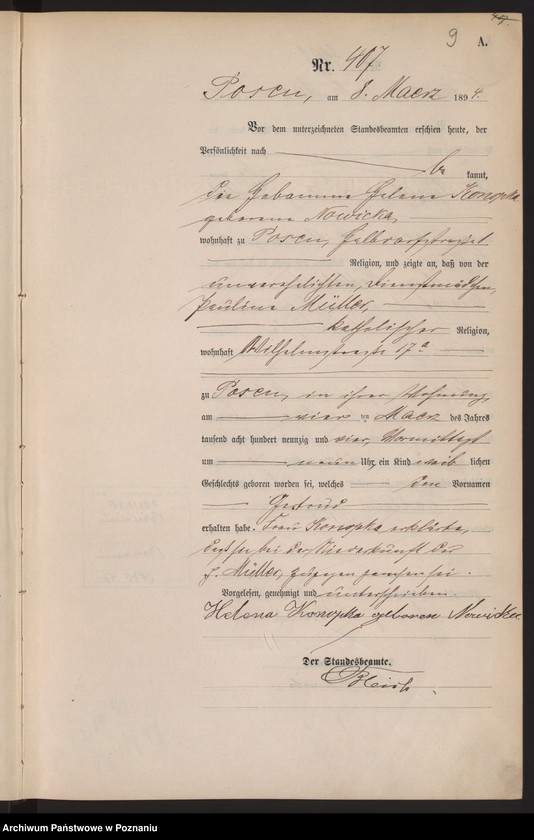 9 A.
Nr. 407
Posen, am 8. Maerz 1894.
Vor dem unterzeichneten Standesbeamten erschien heute, der
Persönlichkeit nach
be kannt,
die Hebamme Helene Konopka
geborene Nowicka,
wohnhaft zu Posen,
Religion, und zeigte an, daß von der
unverehelichten, Dienstmädchen,
Pauline Müller,
katholischer Religion,
wohnhaft Wilhelmstraße 17a
zu Posen, in ihrer Wohnung,
am vier ten Maerz des Jahres
tausend acht hundert neunzig und vier, Vormittags
um neun Uhr, ein Kind weib lichen
Geschlechts geboren worden sei, welches den Vornamen
Gertrud
erhalten habe. Frau Konopka erklärte,
daß sie bei der Niederkunft der
p. Müller, zugegen gewesen sei.
Vorgelesen, genehmigt und unterschrieben
Helena Konopka geborene Nowicka.
Der Standesbeamte.
Archiwum Państwowe w Poznaniu